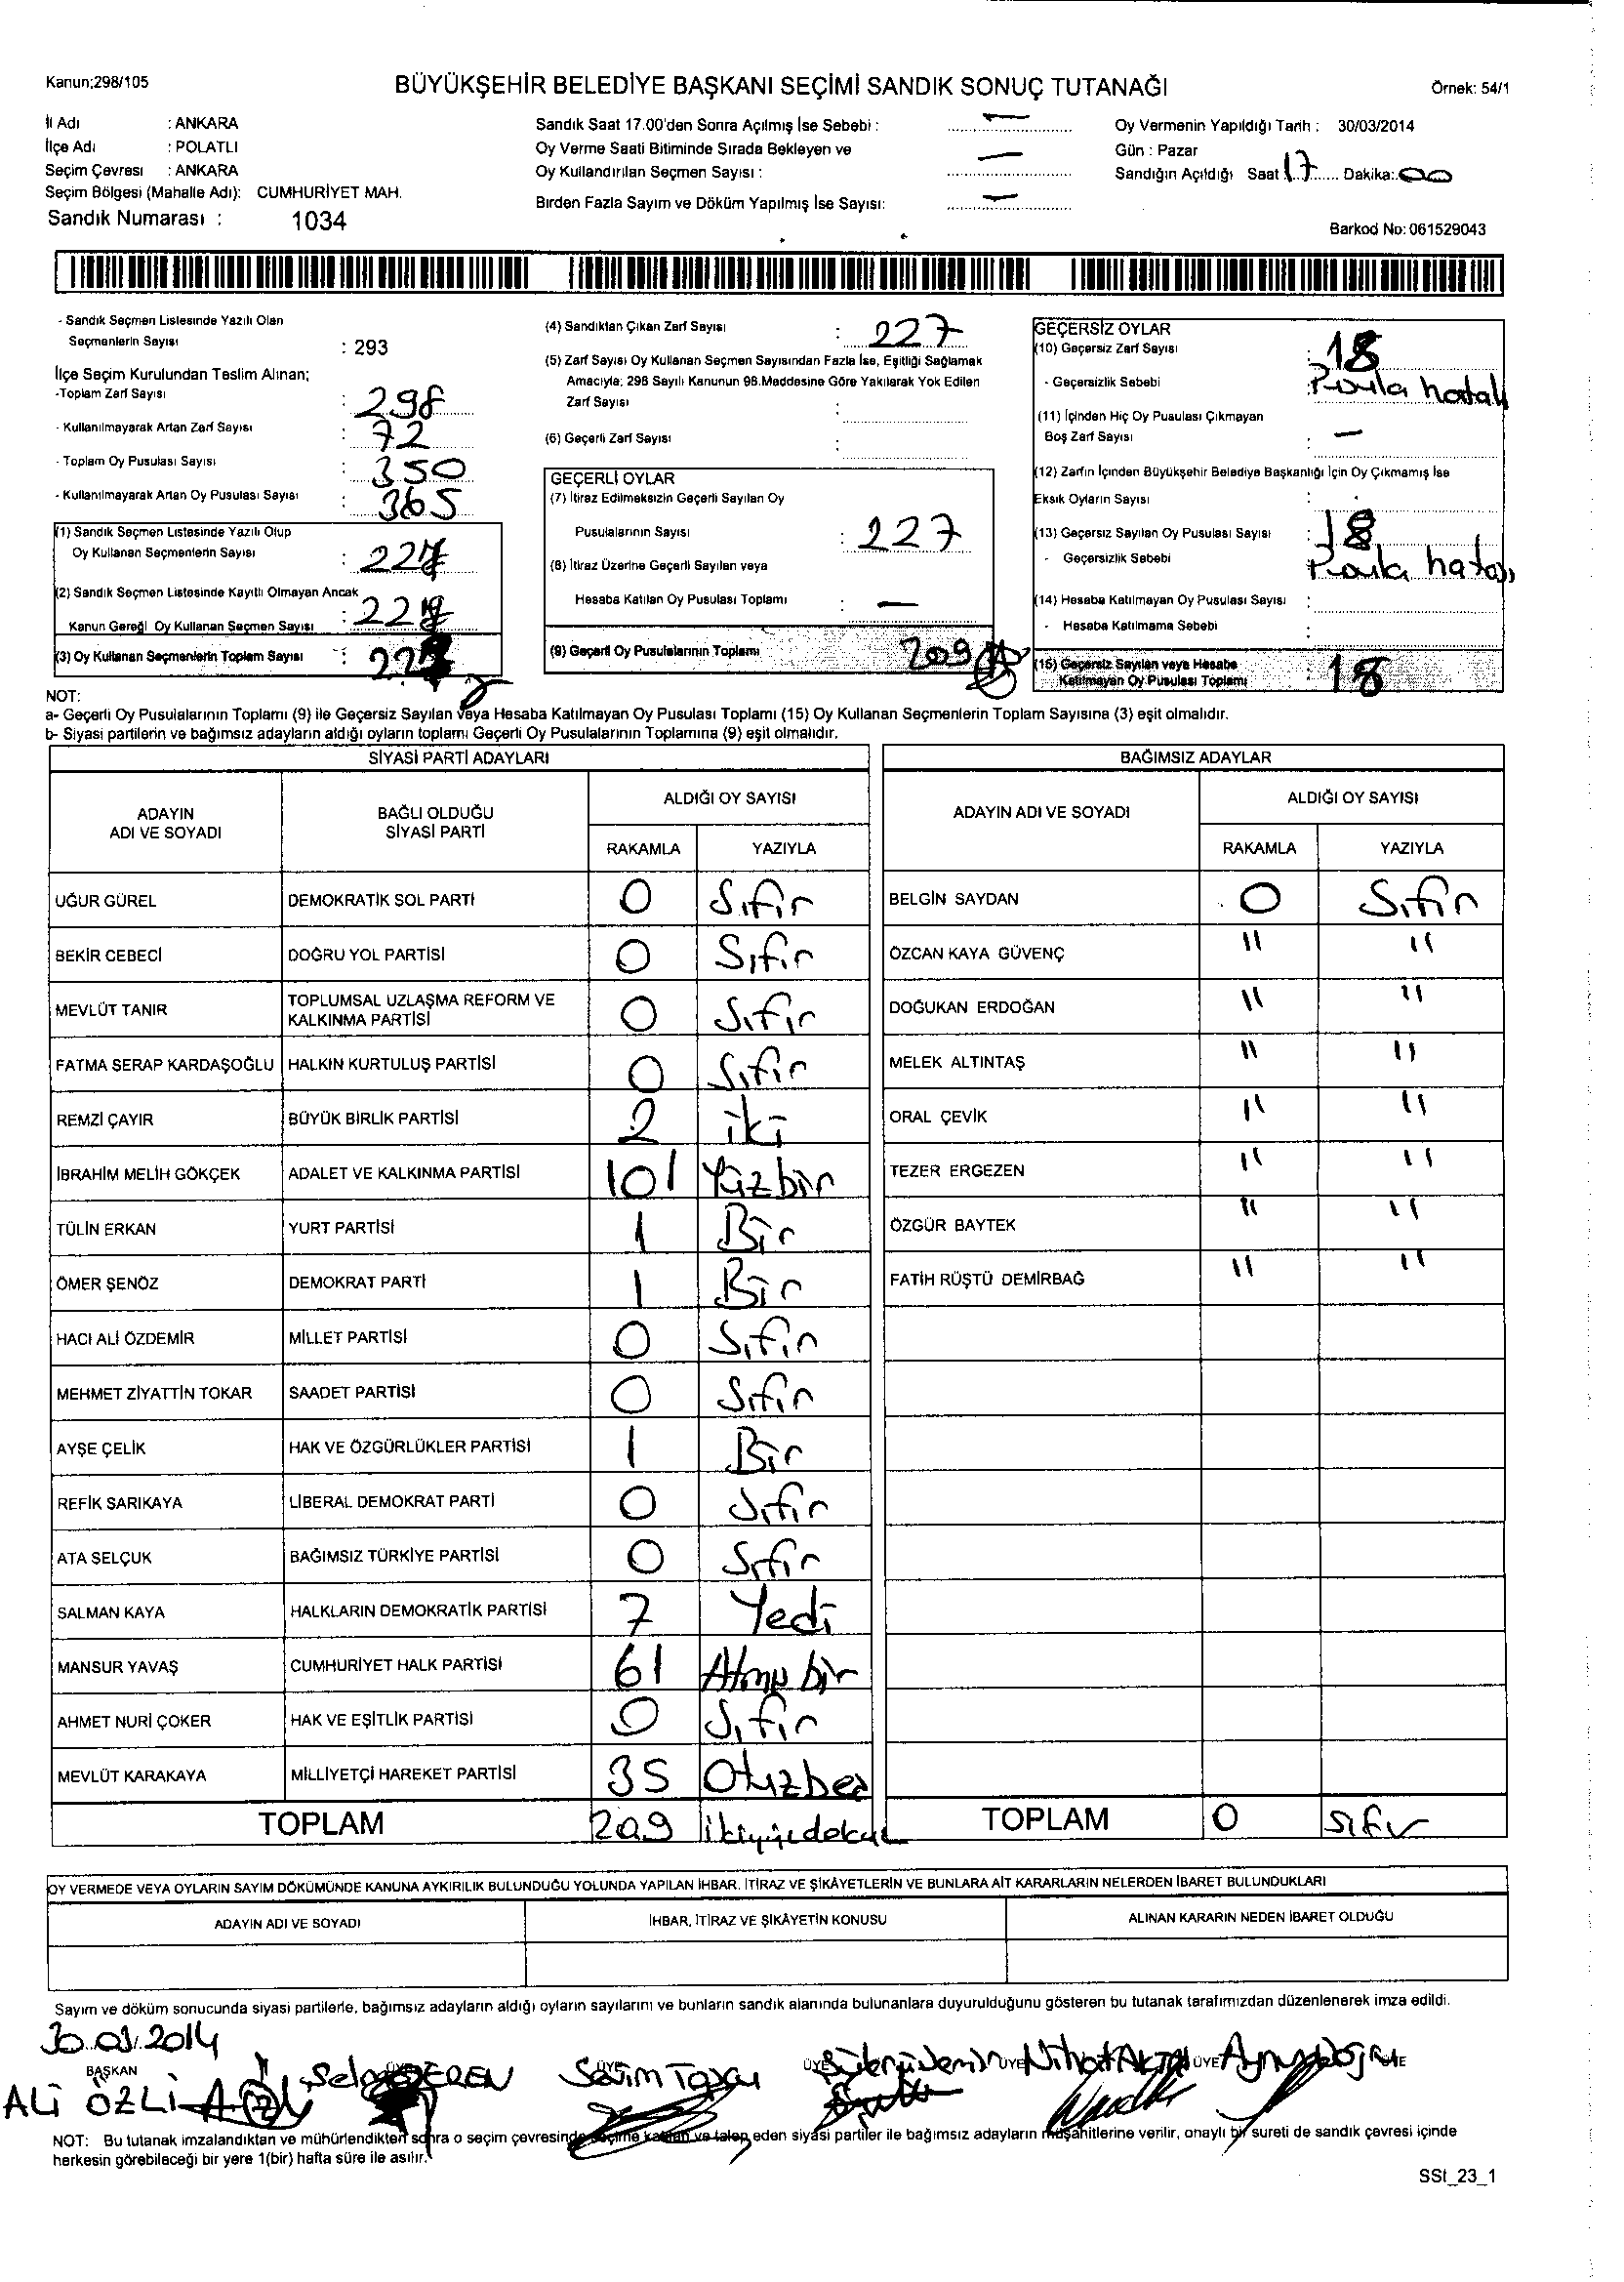 Kanun;298/105
BÜYÜKŞEHİR BELEDİYE BAŞKANI SEÇİMİ SANDIK SONUÇ TUTANAĞI
Örnek: 54/1
İl Adı : ANKARA
İlçe Adı : POLATLI
Seçim Çevresi : ANKARA
Seçim Bölgesi (Mahalle Adı): CUMHURİYET MAH.
Sandık Numarası : 1034
Sandık Saat 17.00'den Sonra Açılmış İse Sebebi : —
Oy Verme Saati Bitiminde Sırada Bekleyen ve
Oy Kullandırılan Seçmen Sayısı : —
Birden Fazla Sayım ve Döküm Yapılmış İse Sayısı: —
Oy Vermenin Yapıldığı Tarih : 30/03/2014
Gün : Pazar
Sandığın Açıldığı Saat 17 Dakika: 00
Barkod No: 061529043
- Sandık Seçmen Listesinde Yazılı Olan
Seçmenlerin Sayısı : 293
İlçe Seçim Kurulundan Teslim Alınan;
-Toplam Zarf Sayısı : 298
- Kullanılmayarak Artan Zarf Sayısı : 72
- Toplam Oy Pusulası Sayısı : 350
- Kullanılmayarak Artan Oy Pusulası Sayısı : 365
(1) Sandık Seçmen Listesinde Yazılı Olup
Oy Kullanan Seçmenlerin Sayısı : 227
(2) Sandık Seçmen Listesinde Kayıtlı Olmayan Ancak
Kanun Gereği Oy Kullanan Seçmen Sayısı : 227
(3) Oy Kullanan Seçmenlerin Toplam Sayısı : 227
(4) Sandıktan Çıkan Zarf Sayısı : 227
(5) Zarf Sayısı Oy Kullanan Seçmen Sayısından Fazla İse, Eşitliği Sağlamak
Amacıyla; 298 Sayılı Kanunun 98.Maddesine Göre Yakılarak Yok Edilen
Zarf Sayısı :
(6) Geçerli Zarf Sayısı :
GEÇERLİ OYLAR
(7) İtiraz Edilmeksizin Geçerli Sayılan Oy
Pusulalarının Sayısı : 227
(8) İtiraz Üzerine Geçerli Sayılan veya
Hesaba Katılan Oy Pusulası Toplamı : —
(9) Geçerli Oy Pusulalarının Toplamı 209
GEÇERSİZ OYLAR
(10) Geçersiz Zarf Sayısı : 18
- Geçersizlik Sebebi : Pusula hatalı
(11) İçinden Hiç Oy Pusulası Çıkmayan
Boş Zarf Sayısı : —
(12) Zarfın İçinden Büyükşehir Belediye Başkanlığı İçin Oy Çıkmamış İse
Eksik Oyların Sayısı :
(13) Geçersiz Sayılan Oy Pusulası Sayısı : 18
- Geçersizlik Sebebi : Pusula hatası
(14) Hesaba Katılmayan Oy Pusulası Sayısı :
- Hesaba Katılmama Sebebi :
(15) Geçersiz Sayılan veya Hesaba
Katılmayan Oy Pusulası Toplamı : 18
NOT:
a- Geçerli Oy Pusulalarının Toplamı (9) ile Geçersiz Sayılan veya Hesaba Katılmayan Oy Pusulası Toplamı (15) Oy Kullanan Seçmenlerin Toplam Sayısına (3) eşit olmalıdır.
b- Siyasi partilerin ve bağımsız adayların aldığı oyların toplamı Geçerli Oy Pusulalarının Toplamına (9) eşit olmalıdır.
SİYASİ PARTİ ADAYLARI
ADAYIN ADI VE SOYADI BAĞLI OLDUĞU SİYASİ PARTİ ALDIĞI OY SAYISI
RAKAMLA YAZIYLA
UĞUR GÜREL DEMOKRATİK SOL PARTİ 0 Sıfır
BEKİR CEBECİ DOĞRU YOL PARTİSİ 0 Sıfır
MEVLÜT TANIR TOPLUMSAL UZLAŞMA REFORM VE KALKINMA PARTİSİ 0 Sıfır
FATMA SERAP KARDAŞOĞLU HALKIN KURTULUŞ PARTİSİ 0 Sıfır
REMZİ ÇAYIR BÜYÜK BİRLİK PARTİSİ 2 iki
İBRAHİM MELİH GÖKÇEK ADALET VE KALKINMA PARTİSİ 101 Yüzbir
TÜLİN ERKAN YURT PARTİSİ 1 Bir
ÖMER ŞENÖZ DEMOKRAT PARTİ 1 Bir
HACI ALİ ÖZDEMİR MİLLET PARTİSİ 0 Sıfır
MEHMET ZİYATTİN TOKAR SAADET PARTİSİ 0 Sıfır
AYŞE ÇELİK HAK VE ÖZGÜRLÜKLER PARTİSİ 1 Bir
REFİK SARIKAYA LİBERAL DEMOKRAT PARTİ 0 Sıfır
ATA SELÇUK BAĞIMSIZ TÜRKİYE PARTİSİ 0 Sıfır
SALMAN KAYA HALKLARIN DEMOKRATİK PARTİSİ 7 Yedi
MANSUR YAVAŞ CUMHURİYET HALK PARTİSİ 61 Atmış bir
AHMET NURİ ÇOKER HAK VE EŞİTLİK PARTİSİ 0 Sıfır
MEVLÜT KARAKAYA MİLLİYETÇİ HAREKET PARTİSİ 35 Otuzbeş
TOPLAM 209 ikiyüzdokuz
BAĞIMSIZ ADAYLAR
ADAYIN ADI VE SOYADI ALDIĞI OY SAYISI
RAKAMLA YAZIYLA
BELGİN SAYDAN 0 Sıfır
ÖZCAN KAYA GÜVENÇ " "
DOĞUKAN ERDOĞAN " "
MELEK ALTINTAŞ " "
ORAL ÇEVİK " "
TEZER ERGEZEN " "
ÖZGÜR BAYTEK " "
FATİH RÜŞTÜ DEMİRBAĞ " "
TOPLAM 0 Sıfır
OY VERMEDE VEYA OYLARIN SAYIM DÖKÜMÜNDE KANUNA AYKIRILIK BULUNDUĞU YOLUNDA YAPILAN İHBAR, İTİRAZ VE ŞİKÂYETLERİN VE BUNLARA AİT KARARLARIN NELERDEN İBARET BULUNDUKLARI
ADAYIN ADI VE SOYADI İHBAR, İTİRAZ VE ŞİKÂYETİN KONUSU ALINAN KARARIN NEDEN İBARET OLDUĞU
Sayım ve döküm sonucunda siyasi partilerle, bağımsız adayların aldığı oyların sayılarını ve bunların sandık alanında bulunanlara duyurulduğunu gösteren bu tutanak tarafımızdan düzenlenerek imza edildi.
30.03.2014
BAŞKAN ÜYE ÜYE ÜYE ÜYE ÜYE
ALİ ÖZLİ
NOT: Bu tutanak imzalandıktan ve mühürlendikten sonra o seçim çevresinde seçime katılan ve talep eden siyasi partiler ile bağımsız adayların müşahitlerine verilir, onaylı bir sureti de sandık çevresi içinde
herkesin görebileceği bir yere 1(bir) hafta süre ile asılır.
SSt_23_1